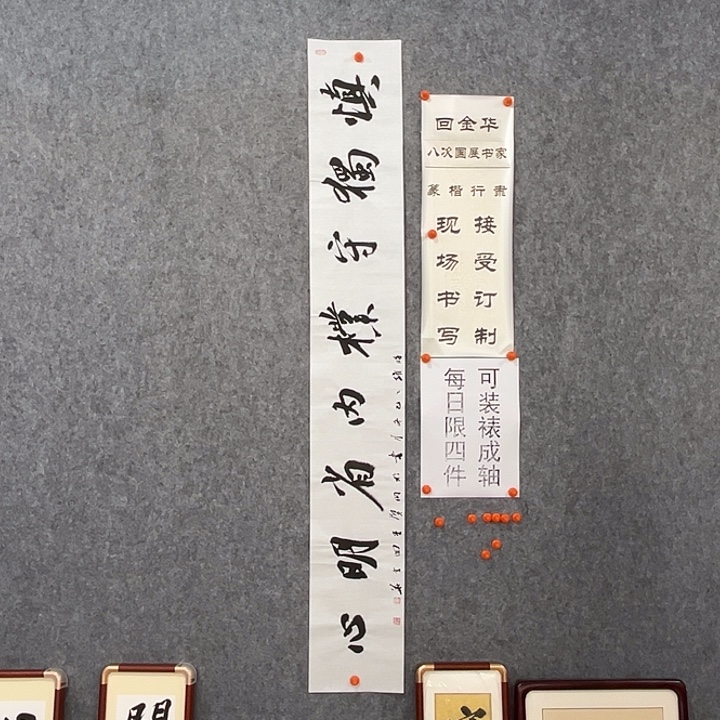 慎獨守樸内省明心
回金华
八次国展书家
篆楷行隶
接受订制
现场书写
可装裱成轴
每日限四件